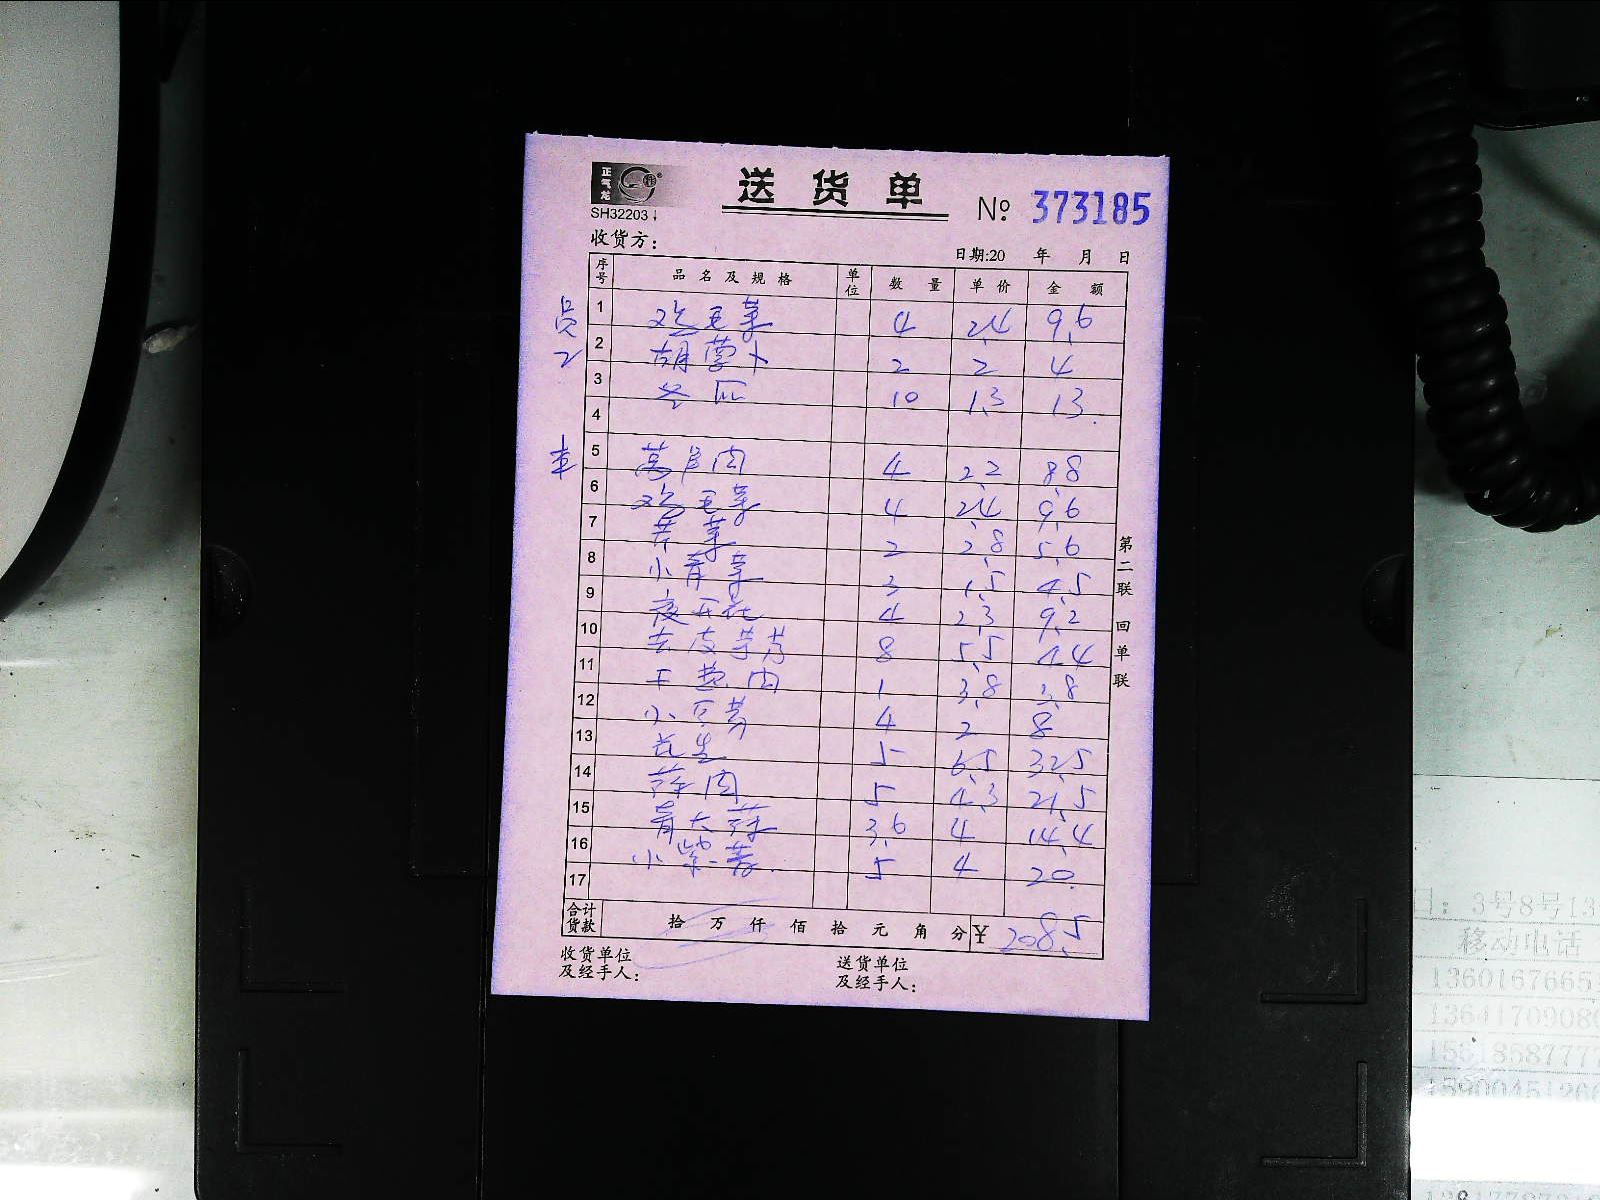 正气龙
SH32203
送货单
№ 373185
收货方：
日期:20 年 月 日
序号 品名及规格 单位 数量 单价 金额
员2
1 鸡毛菜 4 2.4 9.6
2 胡萝卜 2 2 4
3 冬瓜 10 1.3 13
4
车
5 莴笋肉 4 2.2 8.8
6 鸡毛菜 4 2.4 9.6
7 芹菜 2 2.8 5.6
8 小青菜 3 1.5 4.5
9 夜开花 4 2.3 9.2
10 去皮芋艿 8 5.5 44
11 1 3.8 3.8
12 小豆芽 4 2 8
13 花生 5 6.5 32.5
14 蒜肉 5 4.3 21.5
15 青大蒜 3.6 4 14.4
16 小 5 4 20
17
合计货款 拾万仟佰拾元角分 ¥ 208.5
收货单位
及经手人：
送货单位
及经手人：
第二联 回单联
日：3号8号13
移动电话
1360167665
1364170908